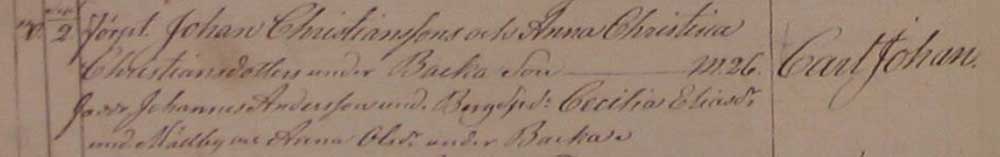 2 Förpt. Johan Christianssons och Anna Christina
Christiansdotters under Backa Son m. 26. Carl Johan.
Johannes Andersson und. Berg Cecilia Eliasdr
und Mällby och Anna Olsdr under Backa